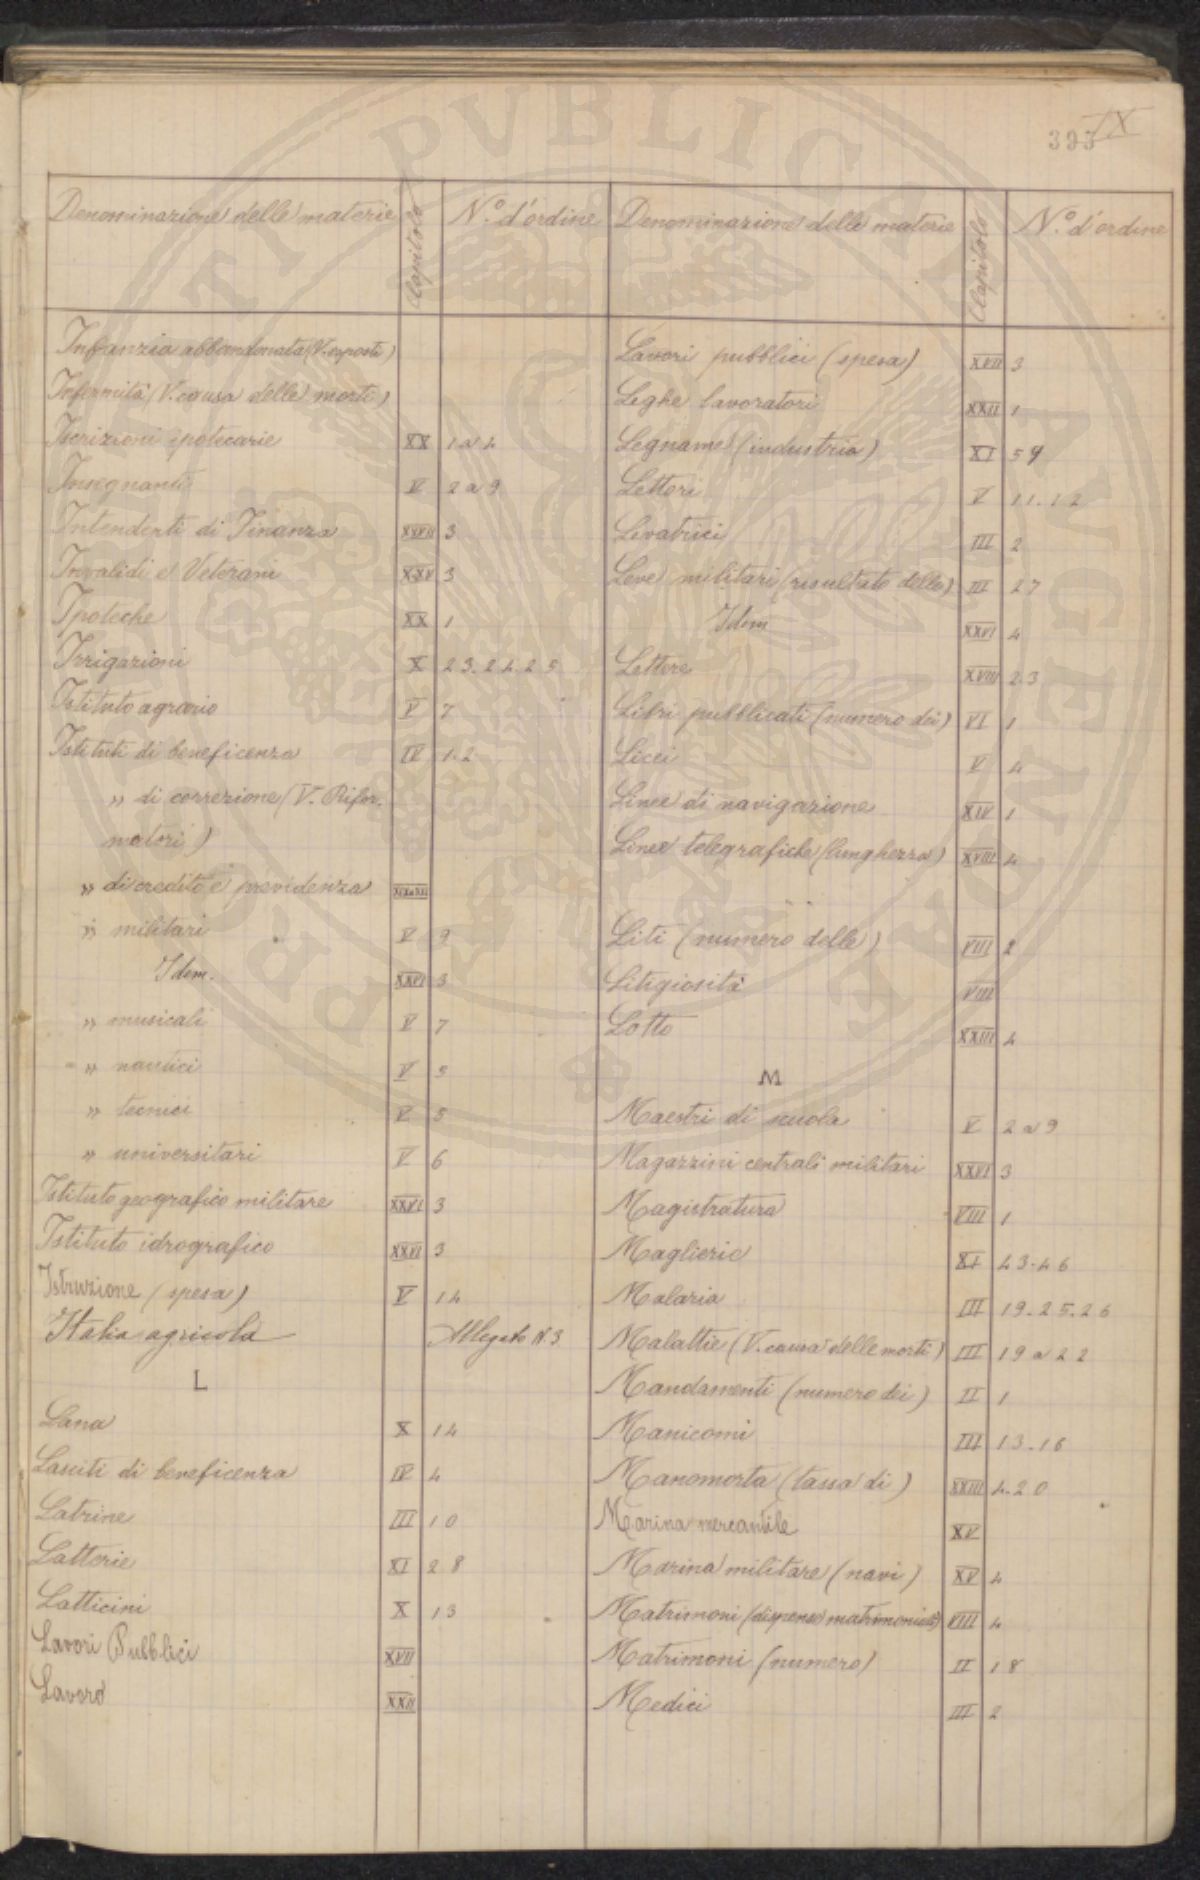 IX
Denominazione delle materie Capitolo N.º d'ordine
Infanzia abbandonata (V. esposti)
Infermità (V. causa delle morti)
Iscrizioni ipotecarie XX 1 a 4
Insegnanti V 2 a 9
Intendenti di Finanza 3
Invalidi e Veterani XXV 3
Ipoteche XX 1
Irrigazioni X 23. 24. 25
Istituto agrario V 7
Istituti di beneficenza IV 1.2
" di correzione (V. Rifor-
matori)
" di credito e previdenza
" militari V 9
Idem. XXVI 3
" musicali V 7
" nautici V 5
" tecnici V 5
" universitari V 6
Istituto geografico militare XXVI 3
Istituto idrografico XXVI 3
Istruzione (spesa) V 14
Italia agricola Allegato N.3
L
Lana X 14
Lasciti di beneficenza IV 4
Latrine III 10
Latterie XI 28
Latticini X 13
Lavori Pubblici XVII
Lavoro XXII
Denominazione delle materie Capitolo N.º d'ordine
Lavori pubblici (spesa) XVII 3
Leghe lavoratori XXII 1
Legname (industria) XI 59
Lettori V 11.12
Levatrici III 2
Leve militari (risultato delle) III 27
Idem XXVI 4
Lettere XVIII 23
Libri pubblicati (numero dei) VI 1
Licei V 4
Linee di navigazione XIV 1
Linee telegrafiche (lunghezza) XVIII 4
Liti (numero delle) VIII 2
Litigiosità VIII
Lotto XXIII 4
M
Maestri di scuola V 2 a 9
Magazzini centrali militari XXVI 3
Magistratura VIII 1
Maglierie XI 43-46
Malaria III 19. 25. 26
Malattie (V. causa delle morti) III 19 a 22
Mandamenti (numero dei) II 1
Manicomi III 13.16
Manomorta (tassa di) XXIII 4.20
Marina mercantile XV
Marina militare (navi) XV 4
Matrimoni (dispense matrimoniali) VIII 4
Matrimoni (numero) II 18
Medici III 2